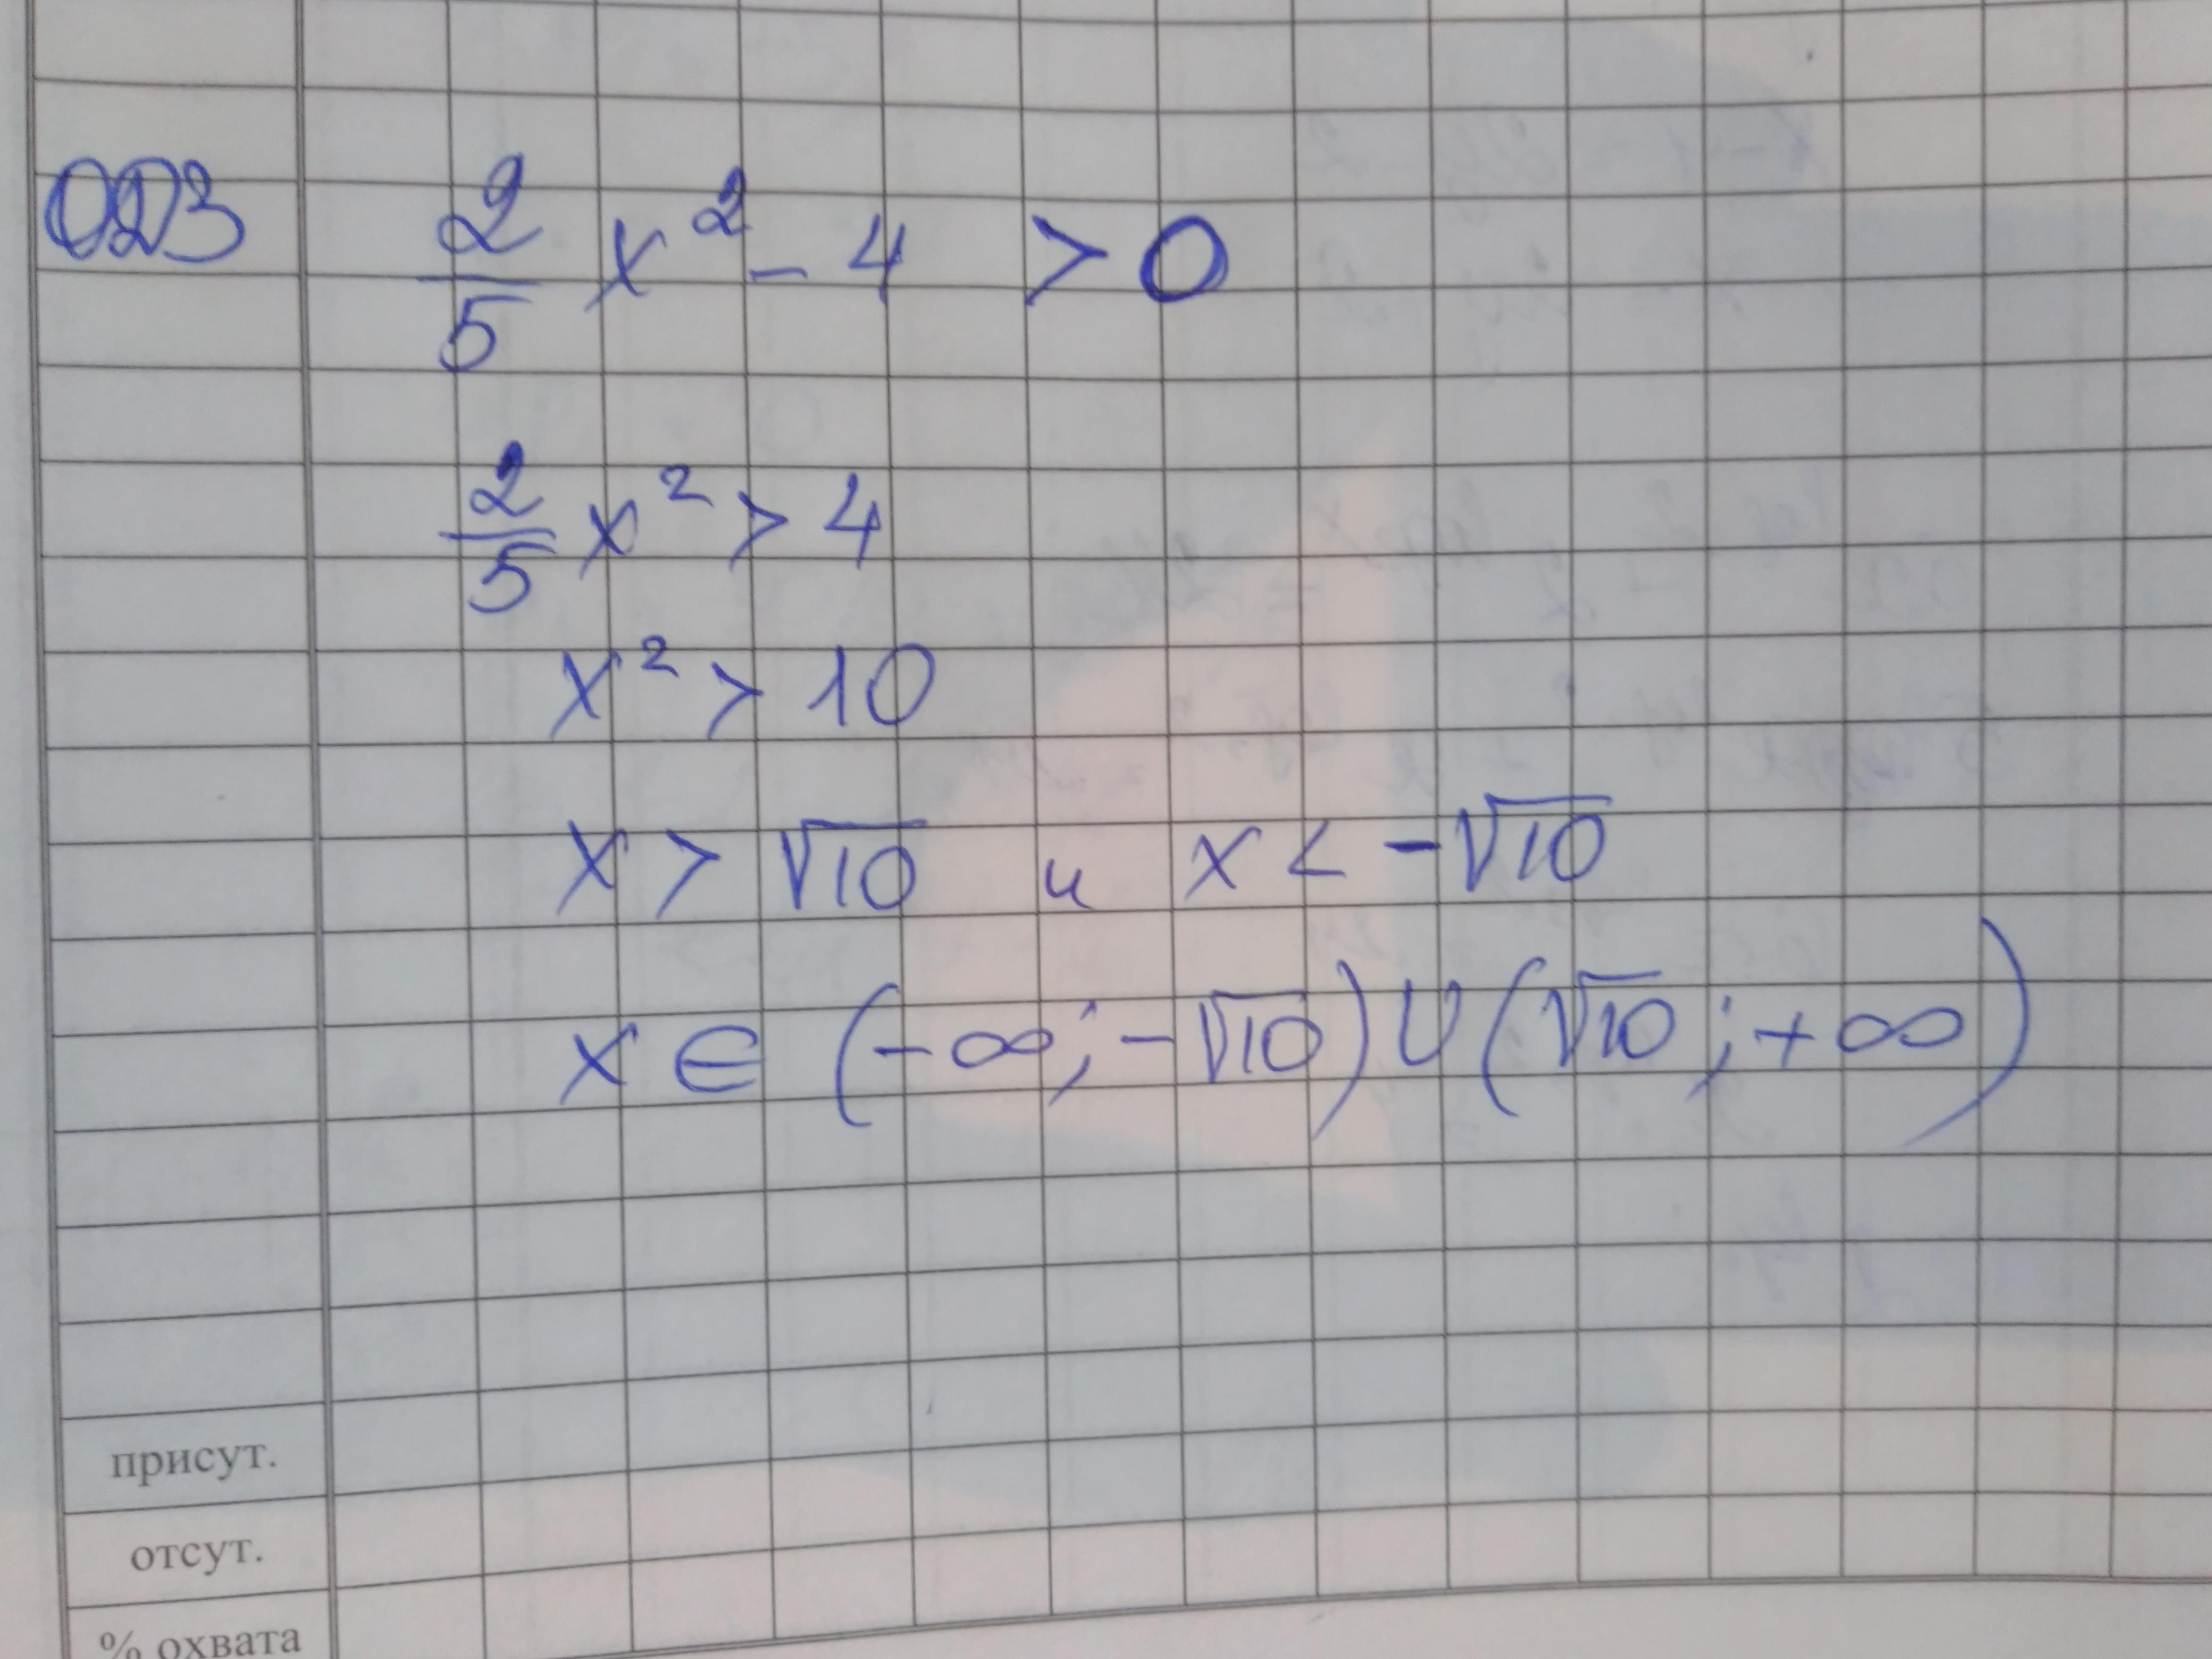 ОДЗ 2/5 x² - 4 > 0
2/5 x² > 4
x² > 10
x > √10 и x < -√10
x ∈ (-∞; -√10) ∪ (√10; +∞)
присут.
отсут.
% охвата